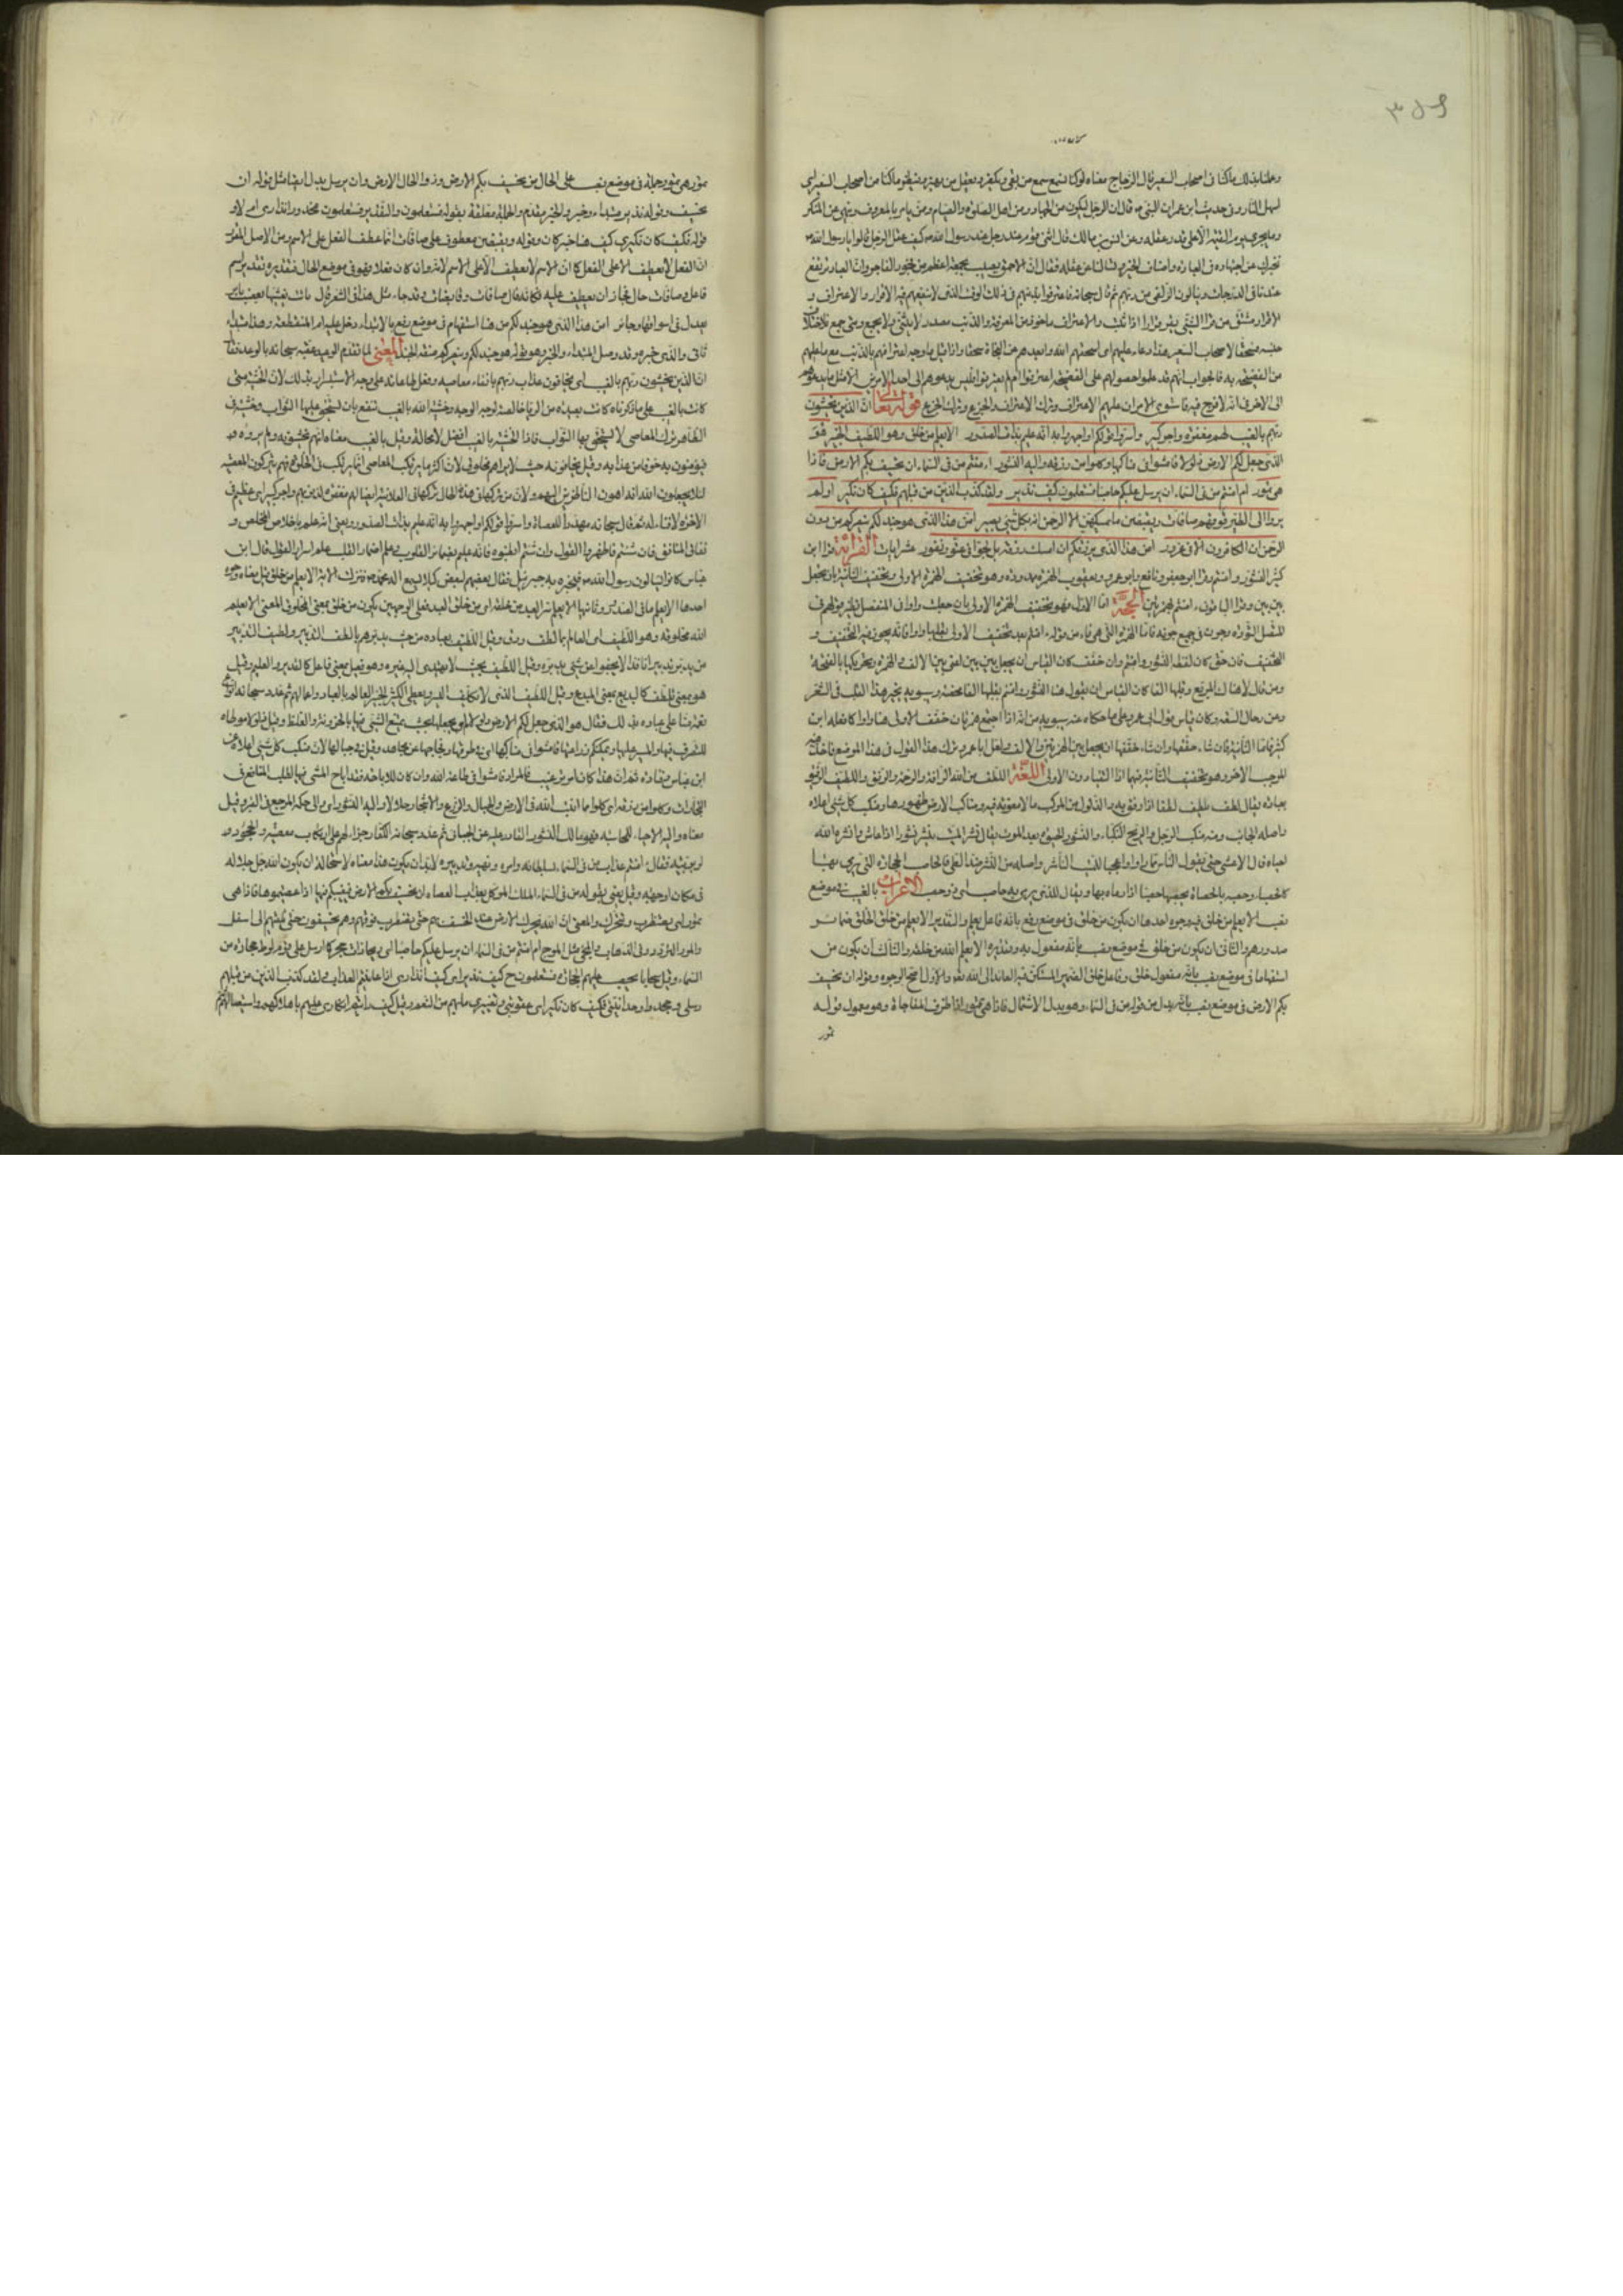 ۳۵۹
وعلمنا بذلك ما كنا في اصحاب السعير قال الزجاج معناه لو كنا نسمع سمع من يعي ويفكر ونعقل من يميز وينظر ما كنا من اصحاب السعير
اهل النار وفي حديث ابن عمر ان النبي قال ان الرجل ليكون من اهل الجهاد ومن اهل الصلوة والصيام وممن يأمر بالمعروف وينهى عن المنكر
وما يجزي يوم القيمة الا على قدر عقله وعن انس بن مالك قال اثنى قوم على رجل عند رسول الله فقال كيف عقل الرجل قالوا يا رسول الله
نخبرك عن اجتهاده في العبادة واصناف الخير وتسألنا عن عقله فقال ان الاحمق يصيب بحمقه اعظم من فجور الفاجر وانما العباد يرتفع
غدا في الدرجات وينالون الزلفى من ربهم ثم قال سبحانه فاعترفوا بذنبهم في ذلك الوقت الذي لا ينفعهم فيه الاقرار والاعتراف و
الاقرار مشتق من قر الشيء يقر قرارا اذا ثبت والاعتراف ماخوذ من المعرفة والذنب مصدر لا يثنى ولا يجمع ومتى جمع فلاختلاف
جنسه فسحقا لاصحاب السعير هذا دعاء عليهم اي اسحقهم الله وابعدهم من النجاة سحقا واذا قيل ما وجه اعترافهم بالذنب مع ما عليهم
من الفضيحة به فالجواب انهم قد علموا حصولهم على الفضيحة اعترفوا ام لم يعترفوا فليس يدعوهم الى احد الامرين الا مثل ما يدعوهم
الى الاخر في انه لا فرج فيه فاستوى الامران عليهم الاعتراف وترك الاعتراف والجزع وترك الجزع قوله تعالى ان الذين يخشون
ربهم بالغيب لهم مغفرة واجر كبير واسروا قولكم او اجهروا به انه عليم بذات الصدور الا يعلم من خلق وهو اللطيف الخبير هو
الذي جعل لكم الارض ذلولا فامشوا في مناكبها وكلوا من رزقه واليه النشور ءامنتم من في السماء ان يخسف بكم الارض فاذا
هي تمور ام امنتم من في السماء ان يرسل عليكم حاصبا فستعلمون كيف نذير ولقد كذب الذين من قبلهم فكيف كان نكير اولم
يروا الى الطير فوقهم صافات ويقبضن ما يمسكهن الا الرحمن انه بكل شيء بصير امن هذا الذي هو جند لكم ينصركم من دون
الرحمن ان الكافرون الا في غرور امن هذا الذي يرزقكم ان امسك رزقه بل لجوا في عتو ونفور عشر ايات القراءة قرا ابن
كثير النشور وامنتم وقرا ابو جعفر ونافع وابو عمرو ويعقوب بهمزة ممدودة وهو تخفيف الهمزة الاولى وتخفيف الثانية بان يجعل
بين بين وقرا الباقون ءامنتم بهمزتين الحجة اما الاول فهو تخفيف الهمزة الاولى بان جعلت واوا في المنفصل نظير قولهم في
المتصل التؤدة وجون في جمع جونة فاما الهمزة التي هي فاء من قوله ءامنتم بعد تخفيف الاولى بقلبها واوا فانه يجوز فيه التخفيف و
التحقيق فان حقق كان لفظه النشور وامنتم وان خفف كان القياس ان يجعل بين بين اعني بين الالف والهمزة وتحريكها بالفتحة
اللغة اللطف من الله الرافة والرحمة والرفق واللطيف الرفيق
بعباده يقال لطف يلطف لطفا اذا رفق به والذلول من المركب ما لا صعوبة فيه ومناكب الارض ظهورها ومنكب كل شيء اعلاه
واصله الجانب ومنه منكب الرجل والريح النكباء والنشور الحيوة بعد الموت يقال نشر الميت ينشر نشورا اذا عاش وانشره الله
احياه قال الاعشى حتى يقول الناس مما راوا يا عجبا للميت الناشر واصله من النشر ضد الطي والحاصب الحجارة التي يرمى بها
كالحصباء وحصبه بالحصاة يحصبه حصبا اذا رماه بها ويقال للذي يرمي به حاصب اي ذو حصب الاعراب بالغيب في موضع
نصب الا يعلم من خلق فيه وجوه احدها ان يكون من خلق في موضع رفع بانه فاعل يعلم والتقدير الا يعلم من خلق الخلق ضمائر
صدورهم والثاني ان يكون من خلق في موضع نصب بانه مفعول به وتقديره الا يعلم الله من خلقه والثالث ان يكون من
استفهاما في موضع نصب بانه مفعول خلق وفاعل خلق الضمير المستكن فيه العائد الى الله تعالى والاول اصح الوجوه وقوله ان يخسف
بكم الارض في موضع نصب بانه بدل من قوله من في السماء وهو بدل الاشتمال فاذا هي تمور اذا ظرف المفاجاة وهو معمول قوله
تمور
تمور هي تمور جملة في موضع نصب على الحال من يخسف بكم الارض وذو الحال الارض وان يرسل بدل ايضا مثل قوله ان
يخسف وقوله نذير مبتداء وخبره كيف والخبر مقدم والجملة معلقة بقوله فستعلمون والتقدير فستعلمون محذور انذاري ام لا و
قوله فكيف كان نكير كيف هنا خبر كان وقوله ويقبضن معطوف على صافات انما عطف الفعل على الاسم ومن الاصل المقرر
ان الفعل لا يعطف الا على الفعل كما ان الاسم لا يعطف الا على الاسم لانه وان كان فعلا فهو في موضع الحال فتقديره تقدير اسم
فاعل وصافات حال فجاز ان يعطف عليه فكانه قال صافات وقابضات وقد جاء مثل هذا في الشعر قال بات يعشيها بعضب باتر
يعدل في اسوقها وجائر امن هذا الذي هو جند لكم من هنا استفهام في موضع رفع بالابتداء ودخل عليه ام المنقطعة وهذا مبتداء
ثاني والذي خبره وقد وصل المبتداء والخبر وهو قوله هو جند لكم وينصركم صفة الجند المعنى لما تقدم الوعيد عقبه سبحانه بالوعد فقال
ان الذين يخشون ربهم بالغيب اي يخافون عذاب ربهم باتقاء معاصيه وفعل طاعاته على وجه الاستسرار بذلك لان الخشية متى
كانت بالغيب على ما ذكرناه كانت بعيدة من الرياء خالصة لوجه الله وخشية الله بالغيب تنفع بان يستحق عليها الثواب وخشية في
الظاهر بترك المعاصي لا يستحق بها الثواب فاذا الخشية بالغيب افضل لا محالة وقيل بالغيب معناه انهم يخشونه ولم يروه
فيؤمنون به خوفا من عذابه وقيل يخافونه حيث لا يراهم مخلوق لان اكثر ما يرتكب المعاصي انما يرتكب في الخلوة فهم يتركون المعصية
لئلا يجعلوا الله اهون الناظرين اليهم ولان من تركها في هذه الحال تركها في العلانية ايضا لهم مغفرة لذنوبهم واجر كبير اي عظيم في
الاخرة لا فناء له ثم قال سبحانه مهددا للعصاة واسروا قولكم او اجهروا به انه عليم بذات الصدور يعني انه عالم باخلاص المخلص و
نفاق المنافق فان شئتم فاظهروا القول وان شئتم فابطنوه فانه عليم بضمائر القلوب ومن علم اضمار القلب علم اسرار القول قال ابن
عباس كانوا ينالون من رسول الله فيخبره به جبرئيل فقال بعضهم لبعض اسروا قولكم لكيلا يسمع اله محمد فنزلت الاية الا يعلم من خلق قيل في معناه وجوه
احدها الا يعلم ما في الصدور من خلق الصدور وثانيها الا يعلم سر العبد من خلقه
الله مخلوقه وهو اللطيف اي العالم بما لطف ودق وقيل اللطيف بعباده من حيث يدبرهم بالطف التدبير ولطيف التدبير
من يدبر تدبيرا نافذا لا يجفو عن شيء يدبره وقيل اللطيف
هو بمعنى ملطف كالبديع بمعنى المبدع وقيل اللطيف الذي يكلف اليسير ويعطي الكثير الخبير العالم بالعباد واعمالهم ثم عدد سبحانه انواع
نعمه ممتنا على عباده بذلك فقال هو الذي جعل لكم الارض ذلولا
ابن عباس وقتادة ثم ان هذا كان امر ترغيب فالمراد فامشوا في طاعة الله وان كان للاباحة فقد اباح المشي فيها لطلب المنافع في
التجارات وكلوا من رزقه اي كلوا مما انبت الله في الارض والجبال من الزرع والاشجار حلالا واليه النشور اي والى حكمه المرجع في القيمة وقيل
معناه واليه الاحياء للمحاسبة فهو مالك النشور القادر عليه عن الجبائي ثم هدد سبحانه الكفار زجرا لهم على ارتكاب معصيته والجحود
لربوبيته فقال ءامنتم عذاب من في السماء سلطانه وامره ونهيه وتدبيره لا بد ان يكون هذا معناه لاستحالة ان يكون الله جل جلاله
في مكان او جهة وقيل يعني بقوله من في السماء الملك الموكل بعذاب العصاة ان يخسف بكم الارض فيغيبكم فيها اذا عصيتموه فاذا هي
تمور اي تضطرب وتتحرك والمعنى ان الله يحرك الارض عند الخسف بهم حتى تضطرب فوقهم وهم يخسفون حتى تلقيهم الى اسفل
والمور التردد في الذهاب والمجيء مثل الموج ام امنتم من في السماء ان يرسل عليكم حاصبا اي ريحا ذات حجر كما ارسل على قوم لوط حجارة من
السماء وقيل سحابا يحصب عليهم الحجارة فستعلمون حينئذ كيف نذير اي كيف انذاري اذا عاينتم العذاب ولقد كذب الذين من قبلهم
رسلي وجحدوا وحدانيتي فكيف كان نكير اي عقوبتي وتغييري ما بهم من النعم وقيل كيف رايتم انكاري عليهم باهلاكهم واستيصالهم